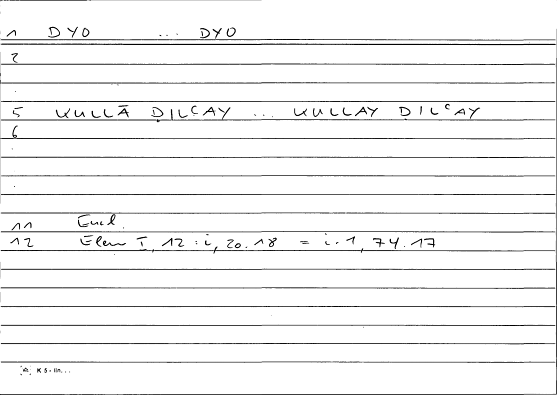 1 DYO ... DYO
2
5 KULLĀ ḌILʿAY ... KULLAY ḌILʿAY
6
11 Eucl.
12 Elem I, 12 : i, 20.18 = i.1, 74.17
K 5 - lin...